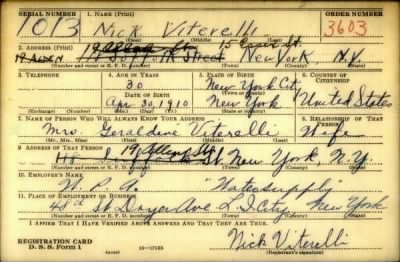 SERIAL NUMBER 1. NAME (Print) ORDER NUMBER
1013 Nick Viterelli 3603
(First) (Middle) (Last)
2. ADDRESS (Print) 19 Allen St 15 St.
New York, N.Y.
(Number and street or R. F. D. number) (Town) (County) (State)
3. TELEPHONE 4. AGE IN YEARS 5. PLACE OF BIRTH 6. COUNTRY OF CITIZENSHIP
30 New York City
DATE OF BIRTH (Town or county)
Apr. 30, 1910 New York United States
(Exchange) (Number) (Mo.) (Day) (Yr.) (State or country)
7. NAME OF PERSON WHO WILL ALWAYS KNOW YOUR ADDRESS 8. RELATIONSHIP OF THAT PERSON
Mrs. Geraldine Viterelli Wife
(Mr., Mrs., Miss) (First) (Middle) (Last)
9. ADDRESS OF THAT PERSON
19 Allen St. New York, N.Y.
(Number and street or R. F. D. number) (Town) (County) (State)
10. EMPLOYER'S NAME
W. P. A. "Water supply"
11. PLACE OF EMPLOYMENT OR BUSINESS
St Ave L. I. City New York
(Number and street or R. F. D. number) (Town) (County) (State)
I AFFIRM THAT I HAVE VERIFIED ABOVE ANSWERS AND THAT THEY ARE TRUE.
REGISTRATION CARD
D. S. S. Form 1 (over) 16—17105 Nick Viterelli
(Registrant's signature)